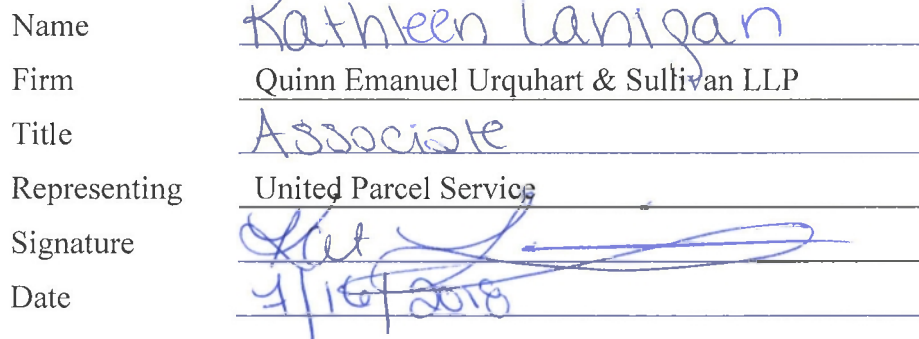 Name Kathleen Lanigan
Firm Quinn Emanuel Urquhart & Sullivan LLP
Title Associate
Representing United Parcel Service
Signature
Date 7/16/2018